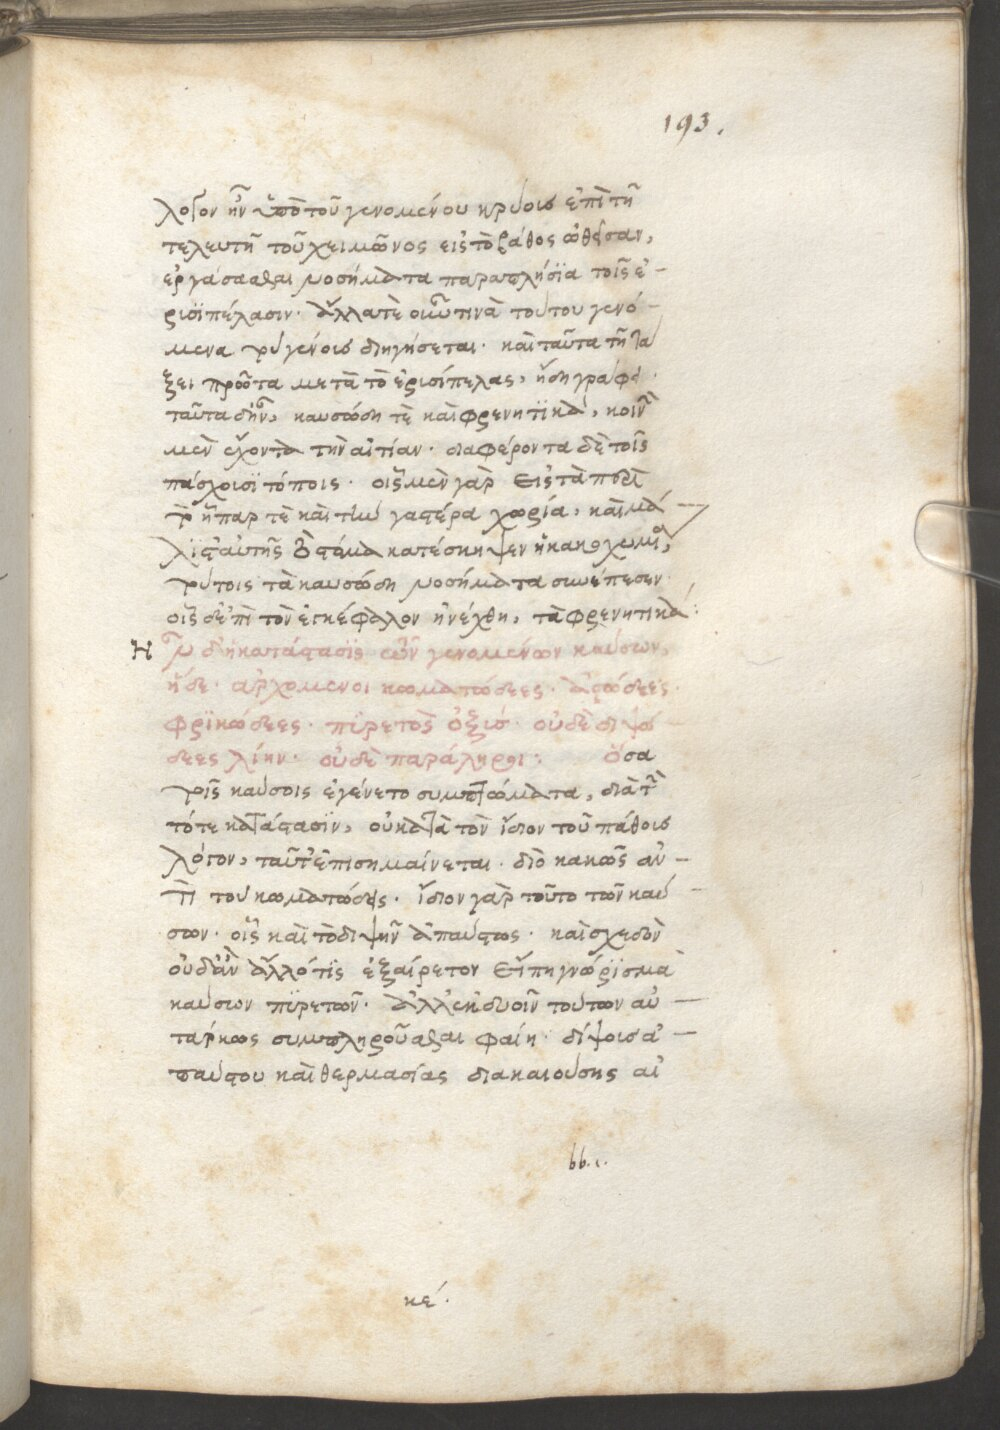 193.
λογον ἦν ὑπὸ τοῦ γενομένου κρύους ἐπὶ τῇ
τελευτῇ τοῦ χειμῶνος εἰς τὸ βάθος ὠθῆσαν,
ἐργάσασθαι νοσήματα παραπλήσϊα τοῖς ἐ-
ρισϊπέλασιν· ἄλλατὲ οὖν τινὰ τούτου γενό-
μενα τοῦ γένους διηγήσεται· καὶ ταῦτα τῇ τά
ξει πρῶτα μετὰ τὸ ἐρισίπελας, ἤδη γράφει·
ταῦτα δ' ἦν, καυσώδη τὲ καὶ φρενητϊκὰ, κοινὴν
μὲν ἔχοντα τὴν αἰτίαν· διαφέροντα δὲ τοῖς
πάσχουσϊ τόποις· οἷς μὲν γὰρ εἰς τὰ περὶ
τὸ ἧπαρ τὲ καὶ τὴν γαστέρα χωρία, καὶ μά-
λϊστ' αὐτῆς τὸ στόμα κατέσκηψεν ἡ κακοχυμία,
τούτοις τὰ καυσώδη νοσήματα συνέπεσεν
οἷς δ' ἐπὶ τὸν ἐγκέφαλον ἠνέχθη, τὰ φρενητικά:
Ἦν δ' ἡ κατάστασϊς τῶν γενομένων καύσων,
ἥδε· ἀρχόμενοι κωματώδεες· ἀσώδεες·
φρϊκώδεες· πϋρετὸς ὀξύς· οὐδὲ διψώ
δεες λίην· οὐδὲ παράληροι: Ὅσα
τοῖς καύσοις ἐγένετο συμπτώματα, διὰ τὴν
τότε κατάστασϊν, οὐ κατὰ τὸν ἴδιον τοῦ πάθους
λόγον, ταῦτ' ἐπισημαίνεται· διὸ κακῶς ἀν-
τὶ τοῦ κωματώδης· ἴδιον γὰρ τοῦτο τῶν καύ-
σων· οἷς καὶ τὸ διψῆν ἀπαύστως· καὶ σχεδὸν
οὐδὲν ἄλλό τϊς ἐξαίρετον εἴπῃ γνώρϊσμα
καύσων πϋρετῶν· ἀλλ' ἐκ δυοῖν τούτων αὐ-
τάρκως συμπληροῦσθαι φαίη· δίψους ἀ-
παύστου καὶ θερμασίας διακαιούσης αἰ
bb.c.
κέ.